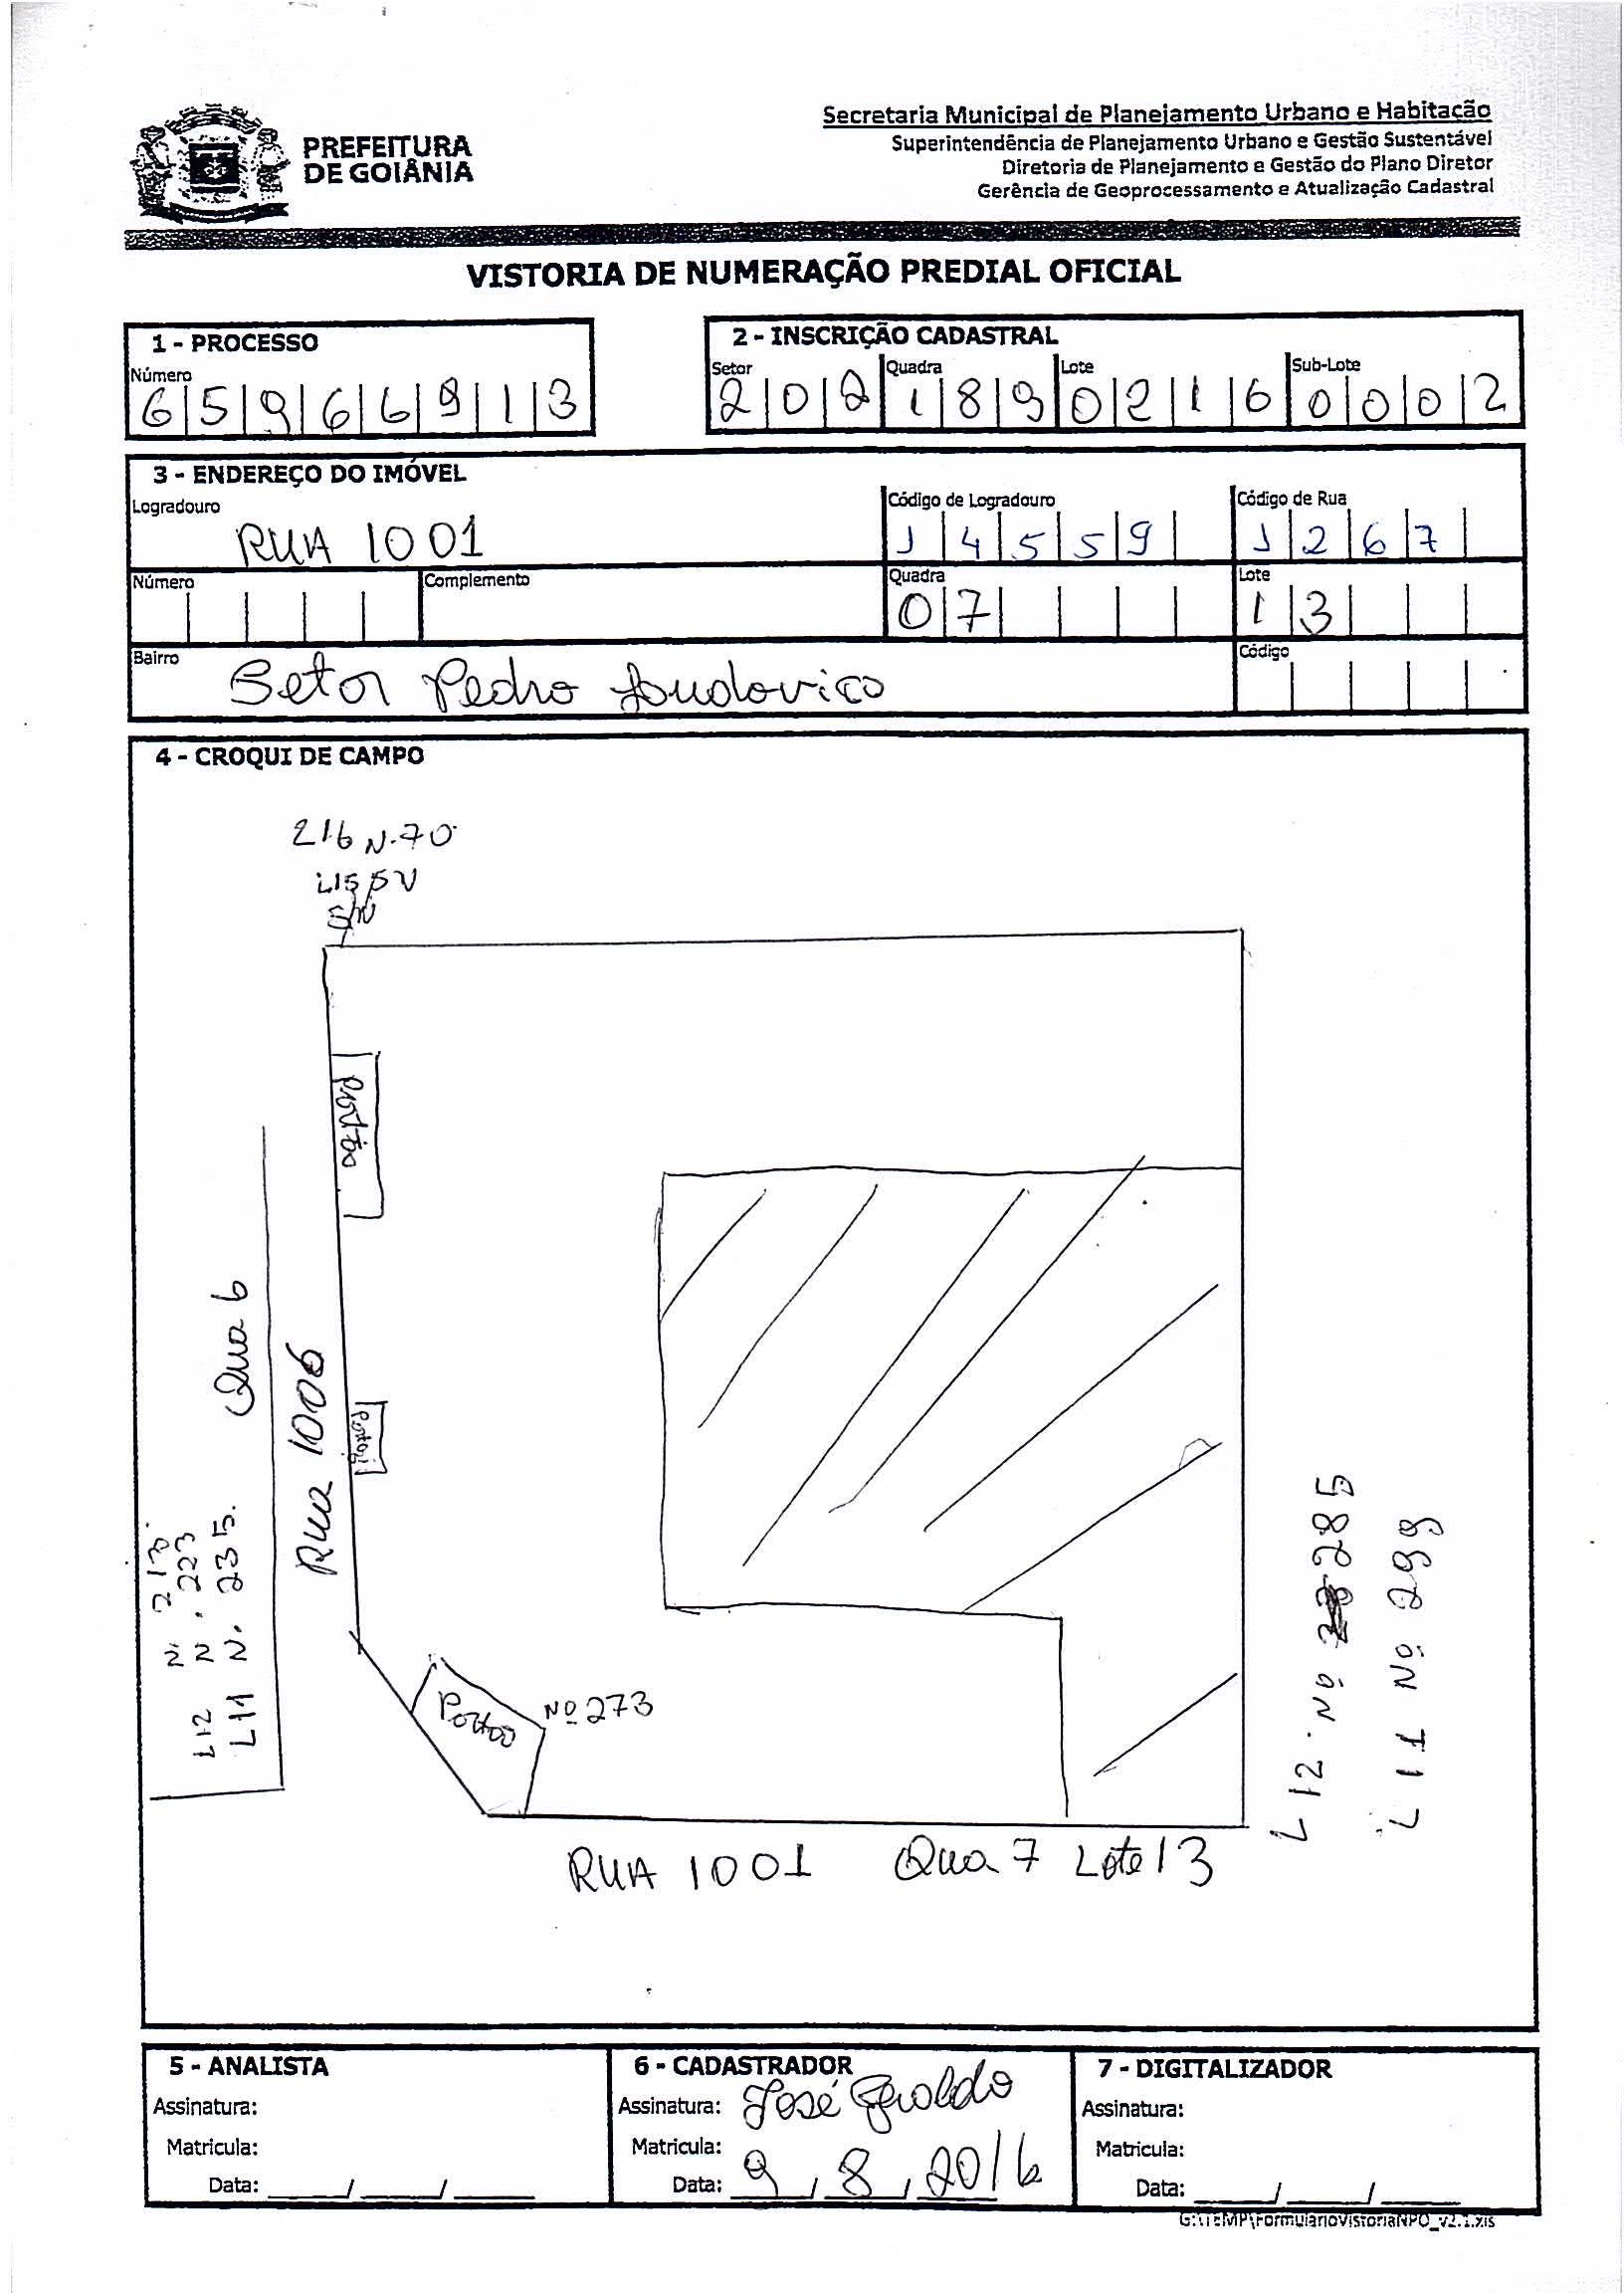 PREFEITURA
DE GOIÂNIA
Secretaria Municipal de Planejamento Urbano e Habitação
Superintendência de Planejamento Urbano e Gestão Sustentável
Diretoria de Planejamento e Gestão do Plano Diretor
Gerência de Geoprocessamento e Atualização Cadastral
VISTORIA DE NUMERAÇÃO PREDIAL OFICIAL
1 - PROCESSO
Número
6 5 9 6 6 9 1 3
2 - INSCRIÇÃO CADASTRAL
Setor Quadra Lote Sub-Lote
2 0 2 1 8 9 0 2 1 6 0 0 0 2
3 - ENDEREÇO DO IMÓVEL
Logradouro Código de Logradouro Código de Rua
RUA 1001 J 4 5 5 9 J 2 6 7
Número Complemento Quadra Lote
0 7 1 3
Bairro Código
Setor Pedro Ludovico
4 - CROQUI DE CAMPO
216 N.70
L15
S/N
Portão
Qua 6
Rua 1006
Portão
N. 213
L12 N. 223
L11 N. 235.
Portão
Nº 273
L12 Nº 285
L11 Nº 299
RUA 1001 Qua 7 Lote 13
5 - ANALISTA
Assinatura:
Matricula:
Data: ____/____/____
6 - CADASTRADOR
Assinatura: José Geraldo
Matricula:
Data: 9/8/2016
7 - DIGITALIZADOR
Assinatura:
Matricula:
Data: ____/____/____
G:\TEMP\FormularioVistoriaNPO_v2.1.xls